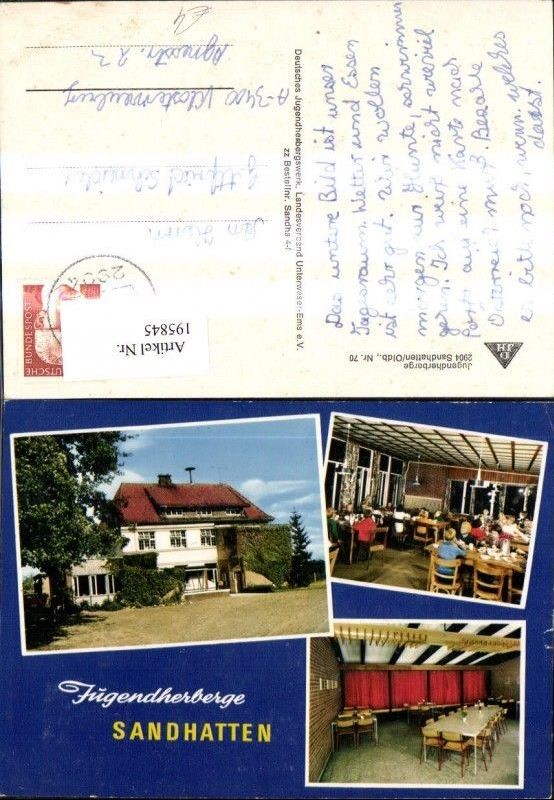 Jugendherberge
2904 Sandhatten/Oldb., Nr. 70
Das untere Bild ist unser
Tagesraum. Wetter und Essen
ist sehr gut. Wir wollen
morgen zur Hunte, schwimmen
gern. Ich weiß nicht wieviel
Porto auf eine Karte nach
Österreich muß. Bezahle
es bitte noch, wenn welches
Deutsches Jugendherbergswerk, Landesverband Unterweser-Ems e.V.
zz Bestellnr. Sandha 4-f
A-3400 Klosterneuburg
Agnesstr. 23
DEUTSCHE BUNDESPOST
2904
Artikel Nr.
195845
Jugendherberge
SANDHATTEN